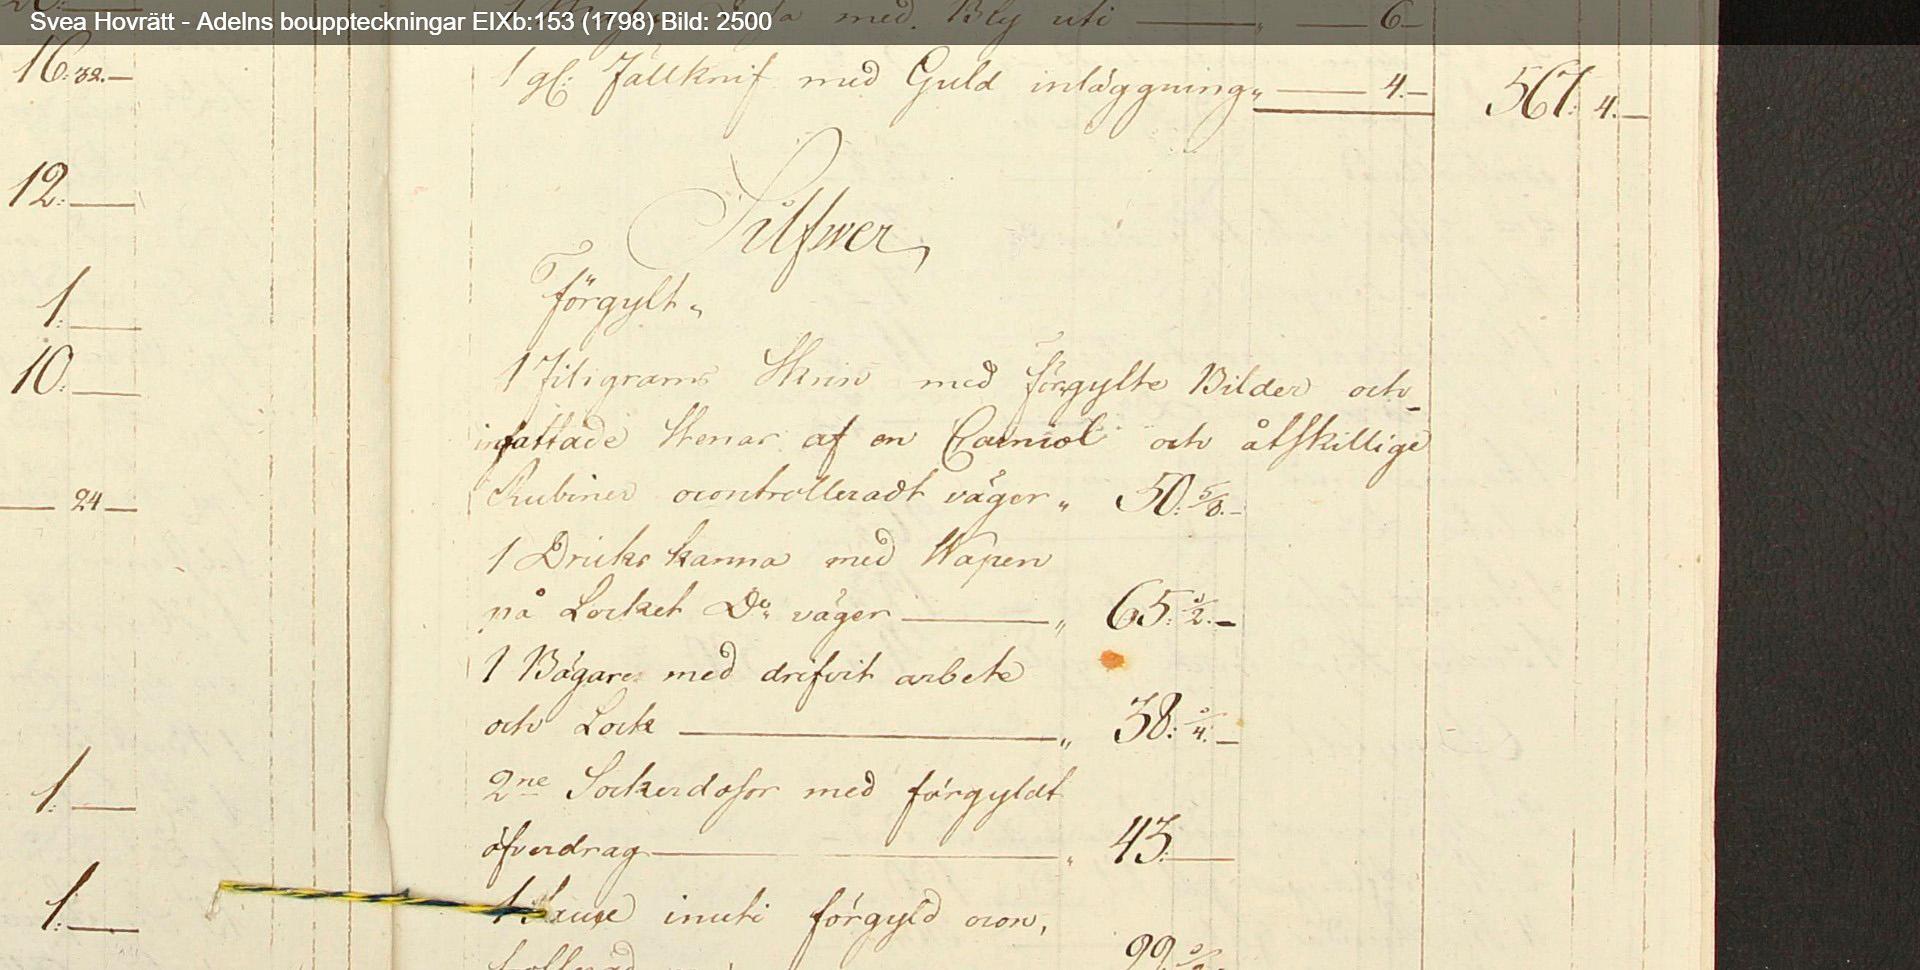 Svea Hovrätt - Adelns bouppteckningar EIXb:153 (1798) Bild: 2500
med Bly uti — " — 6 —
16: 32. —
1 gl: Fällknif med Guld inläggning " — 4. — 567: 4. —
12: —
Silfwer,
Förgylt "
1: —
10: —
1 Filigrams Skrin med förgylte Bilder och
infattade Stenar af en Carniol och åtskillige
24 —
Rubiner ocontrolleradt väger " 50: 5/8. —
1 Dricks kanna med Wapen
på Locket Do väger — " 65: 1/2. —
1 Bägare med drifvit arbete
och Lock — " 38: 3/4. —
1: —
2ne Sockerdosor med förgyldt
öfverdrag — " 43: —
1: —
1 inuti förgyld ocon,
99